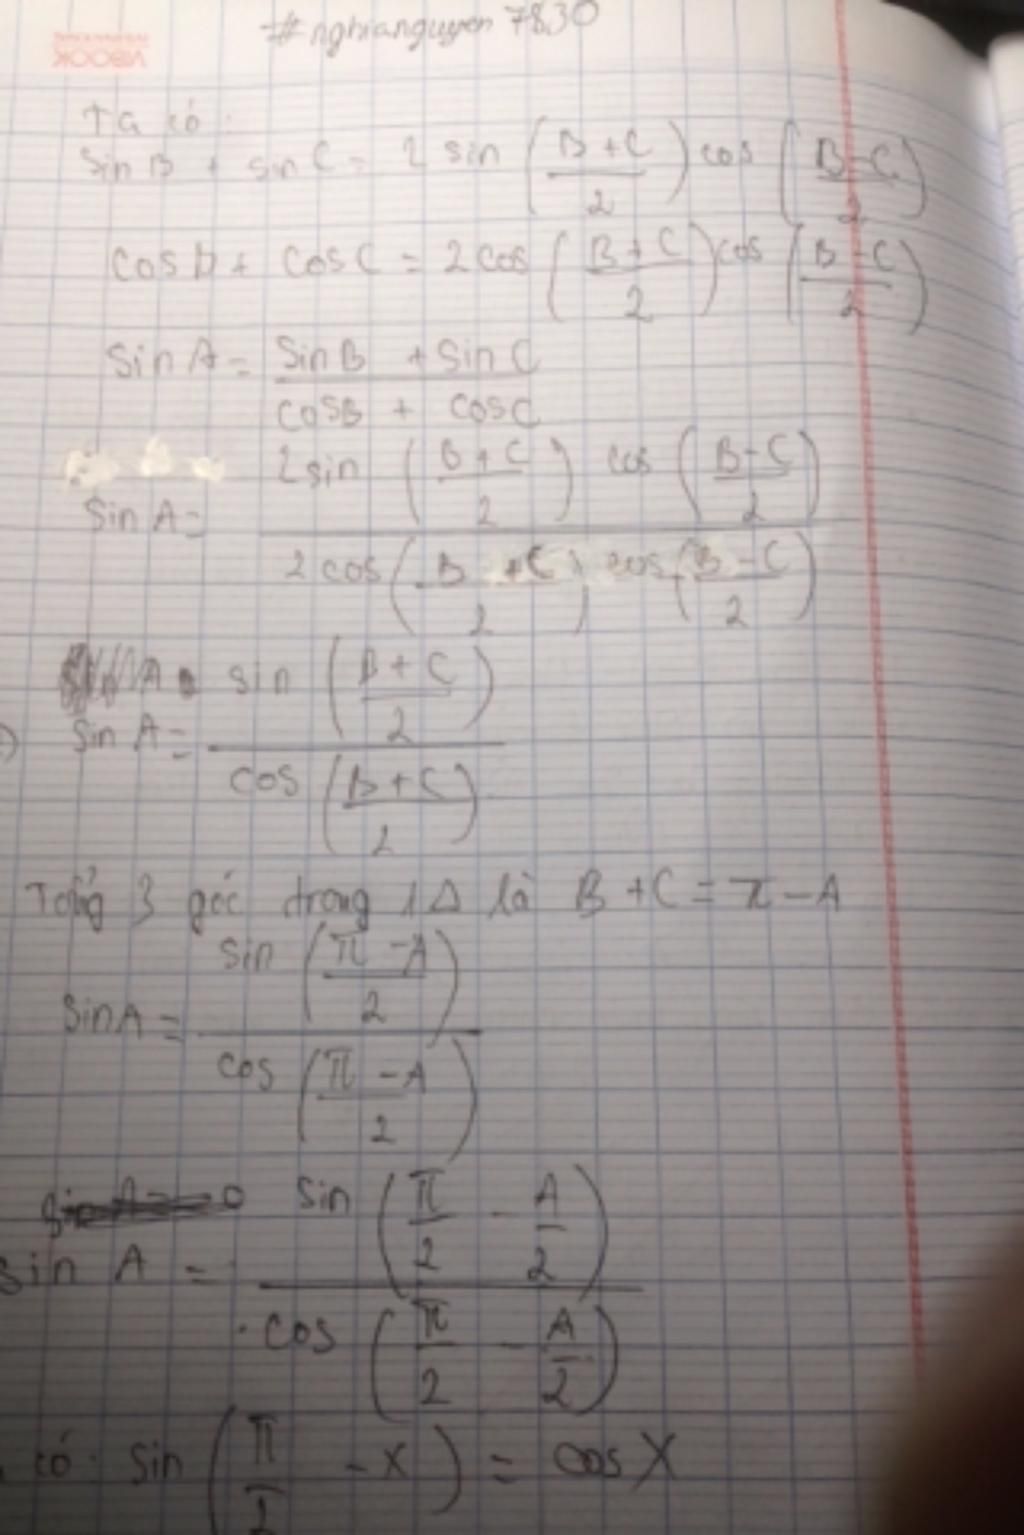 #nghianguyen7830
VBOOK
Ta có:
sin B + sin C = 2 sin ( B + C / 2 ) cos ( B - C / 2 )
cos B + cos C = 2 cos ( B + C / 2 ) cos ( B - C / 2 )
sin A = sin B + sin C / cos B + cos C
sin A = 2 sin ( B + C / 2 ) cos ( B - C / 2 ) / 2 cos ( B + C / 2 ) cos ( B - C / 2 )
sin A = sin ( B + C / 2 ) / cos ( B + C / 2 )
Tổng 3 góc trong 1 Δ là B + C = π - A
sin A = sin ( π - A / 2 ) / cos ( π - A / 2 )
sin A = sin ( π/2 - A/2 ) / cos ( π/2 - A/2 )
có sin ( π/2 - X ) = cos X